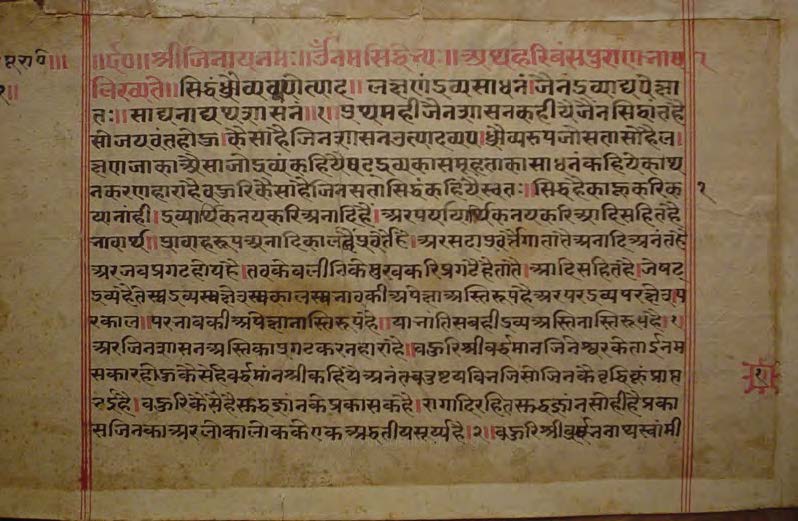 ॥९॥ श्रीजिनायनमः॥ ॐनमसिद्धेभ्यः॥ अथहरिबंसपुराणभाषा
लिख्यते॥ सिद्धंध्रौव्यव्ययोत्पाद॥ लक्षणंद्रव्यसाधनं॥ जैनंद्रव्याद्यपेक्षा
तः॥ साद्यनाद्यथशासनं॥१॥ प्रथमहीजैनशासनकहीयेजैनसिद्धांतहै
सोजयवंतहोऊ॥ कैसाहैजिनशासनउत्पादव्यय॥ध्रौव्यरूपजोसतासोहैल॥
क्षणजाकाअैसाजोद्रव्यकहियेषटद्रव्यकासमूहताकासाधनकहियेकाथ
नकरणहाराहैबऊरिकैसाहैजिनसतासिद्धंकहियेस्वतः॥ सिद्धहैकाहूकरिक
यानाही॥ द्रव्यार्थिकनयकरिअनादिहै॥ अरपर्यायार्थिकनयकरिआदिसहितहै
भावार्थ॥ प्रवाहरूपअनादिकालतैंप्रवर्तेहै॥ अरसदाप्रवर्तैगातातैअनादिअनंतहै
अरजबप्रगटहोयहै॥ तबकेवलीनिकेमुखकरिप्रगटैहैतातै॥ आदिसहितहै॥ जेषट
द्रव्यहैतेस्वद्रव्यस्वक्षेत्रस्वकालस्वभावकीअपेक्षाअस्तिरूपहैअरपरद्रव्यपरक्षेत्रप
रकाल॥ परभावकीअपेक्षानास्तिरूपहै॥ याभांतिसबहीद्रव्यअस्तिनास्तिरूपहै॥१
अरजिनशासनअस्तिकाप्रगटकरनहाराहै॥ बऊरिश्रीवर्द्धमानजिनेश्वरकेताईनम
सकारहोऊकैसेहैवर्द्धमानश्रीकहियेअनंतचतुष्टयविनजिसोजिनकैवृद्धिकूंप्राप्त
भईहै॥ बऊरिकैसेहैसुद्धज्ञानकेप्रकासकहै॥ रागादिरहितसुद्धज्ञानसोहीहैप्रका
सजिनकाअरलोकालोककेएकअद्वतीयसूर्य्यहै॥२॥ बऊरिश्री